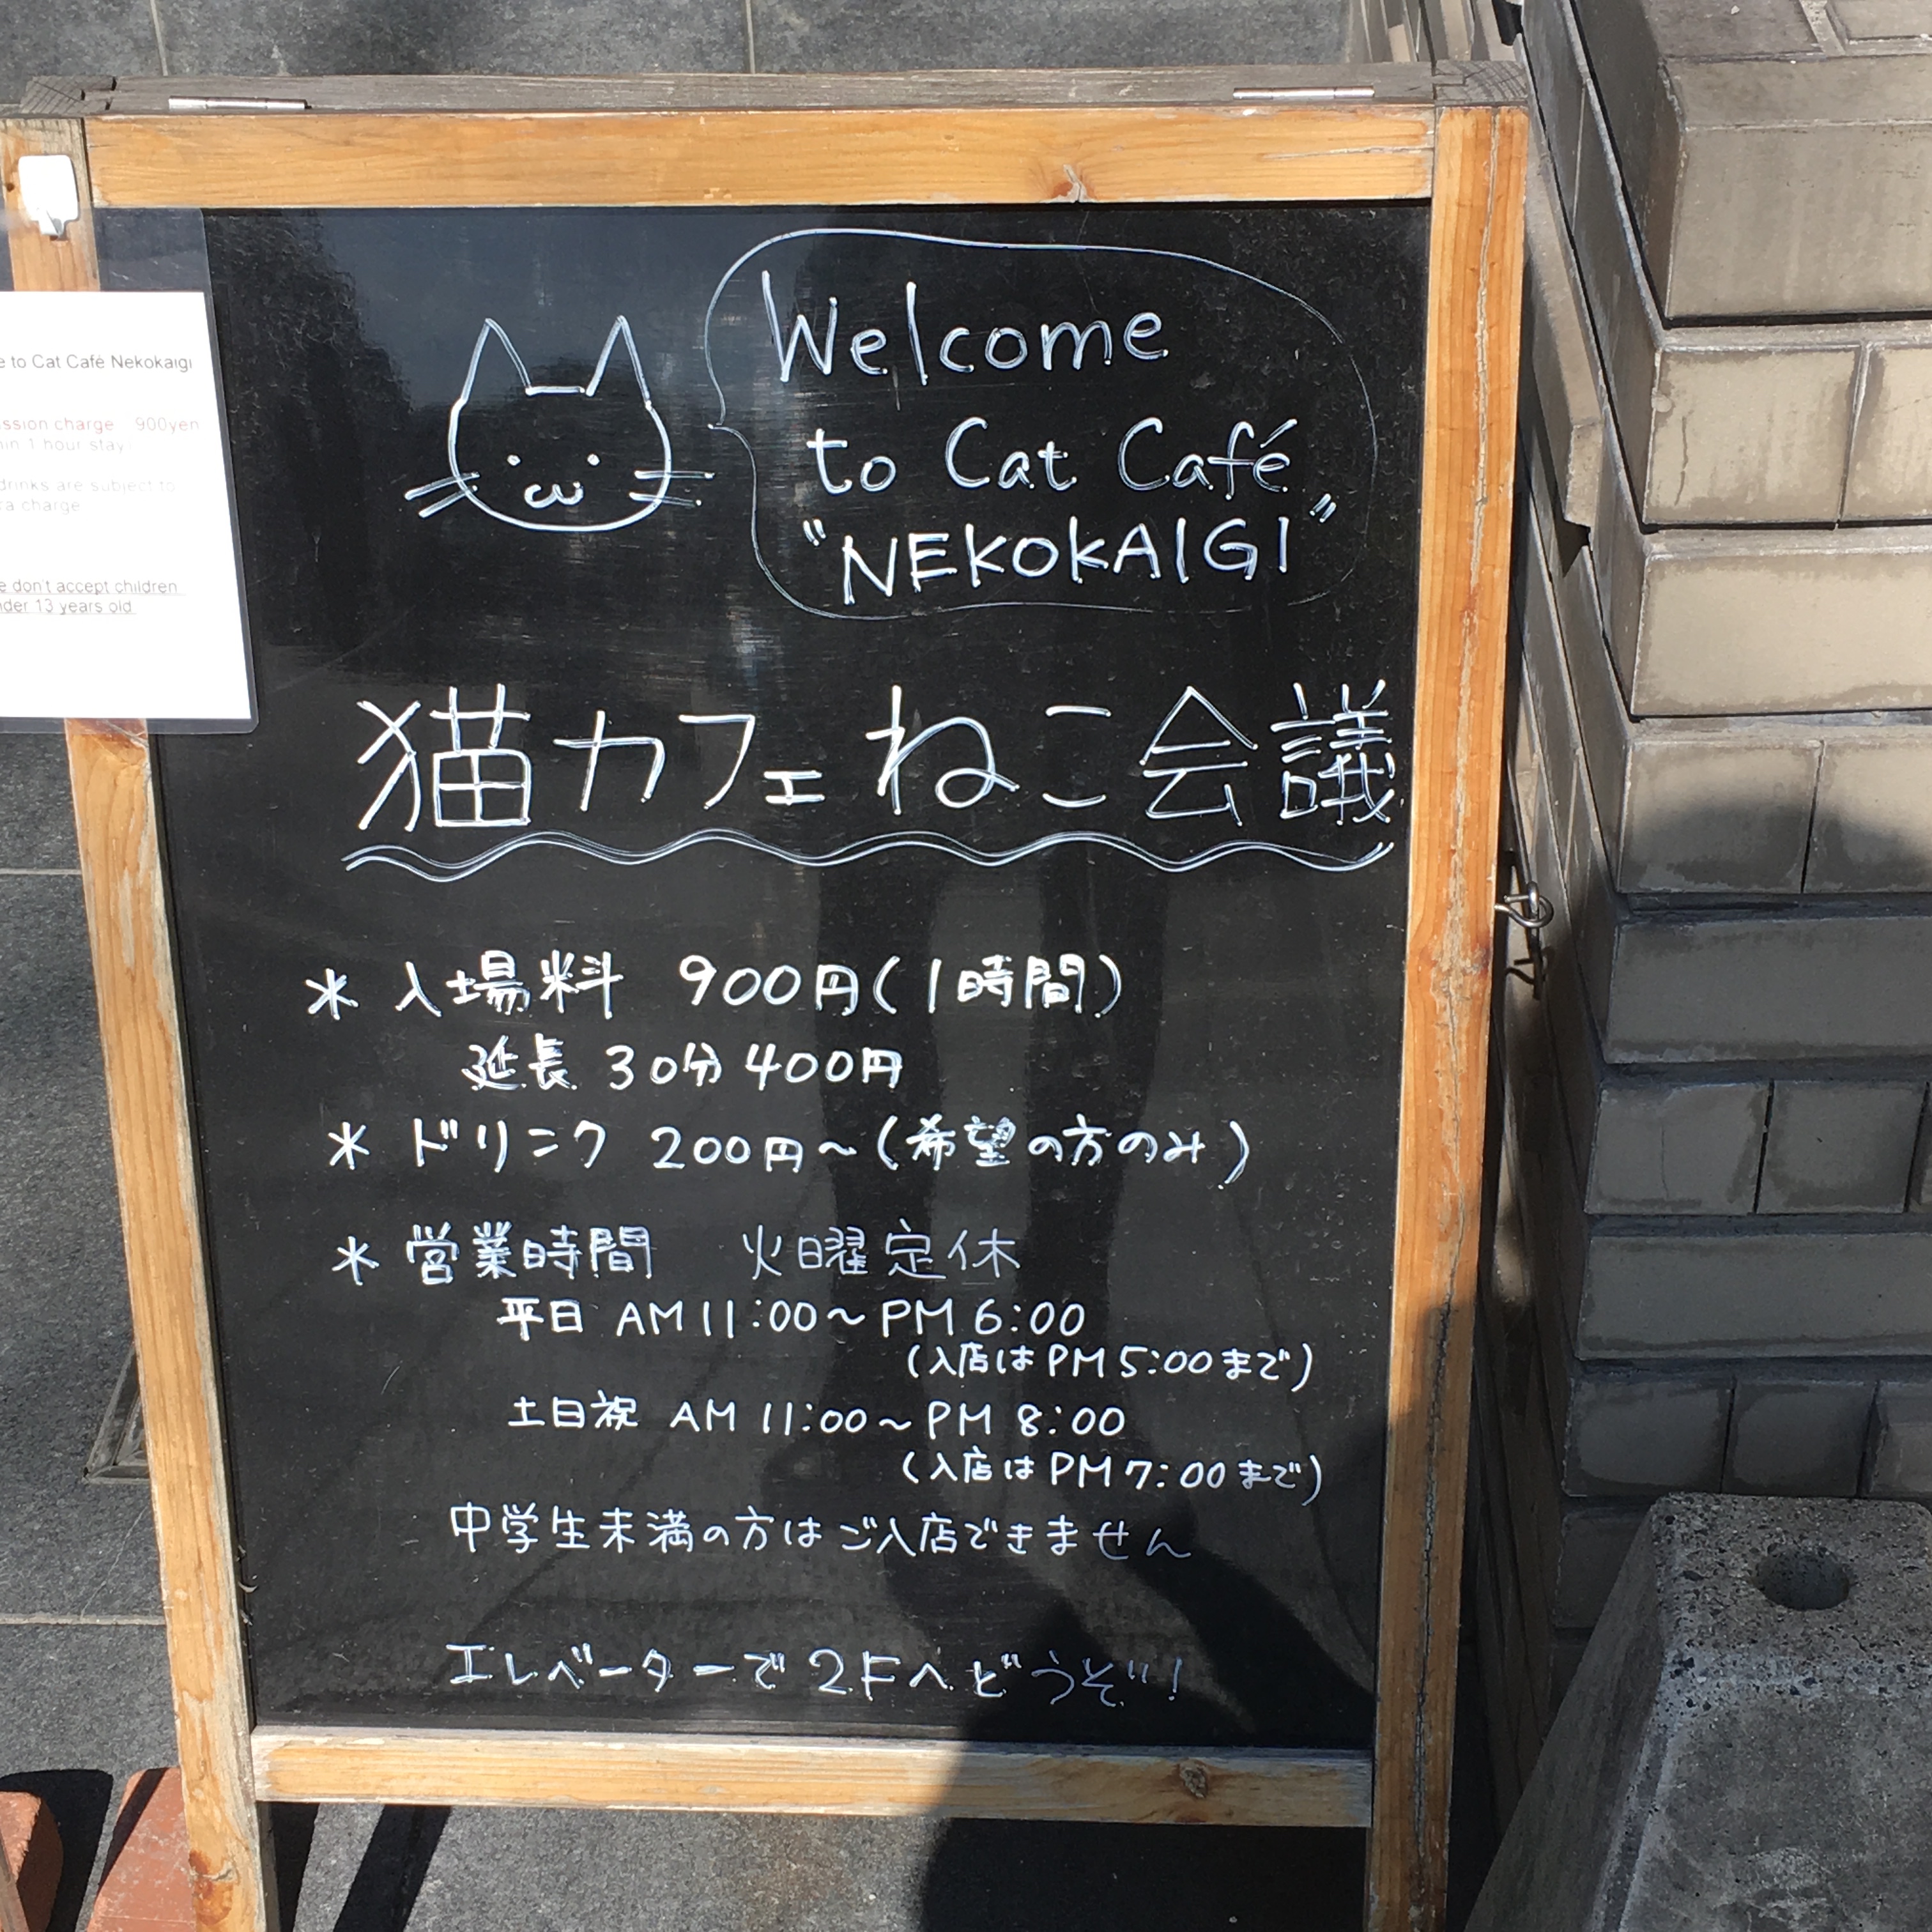 Welcome
to Cat Café
"NEKOKAIGI"
猫カフェ ねこ会議
* 入場料 900円(1時間)
延長 30分 400円
* ドリンク 200円~(希望の方のみ)
* 営業時間 火曜定休
平日 AM 11:00~PM 6:00
(入店は PM 5:00まで)
土日祝 AM 11:00~PM 8:00
(入店は PM 7:00まで)
中学生未満の方はご入店できません
エレベーターで2Fへどうぞ!
e to Cat Café Nekokaigi
ssion charge 900yen
in 1 hour stay
drinks are subject to
a charge
e don't accept children
der 13 years old